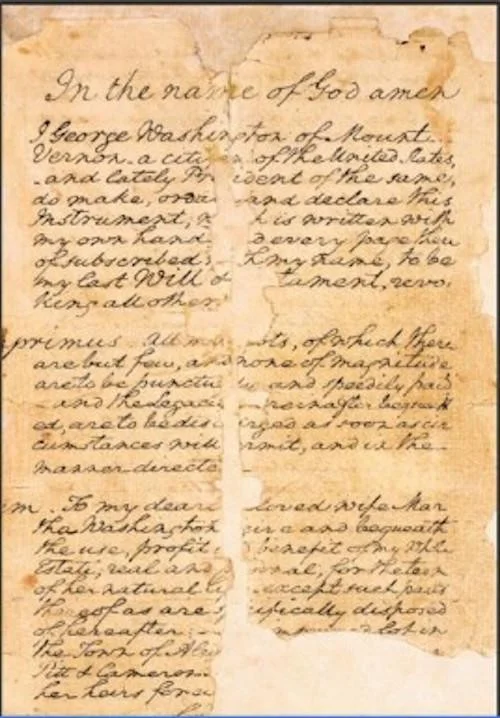 In the name of God amen
I George Washington of Mount
Vernon a citizen of the United States,
and lately Pr ident of the same,
do make, orda and declare this
Instrument, w h is written with
my own hand d every page there
of subscribed h my name, to be
my last Will & tament, revo
king all other
primus all my ts, of which there
are but few, and none of magnitude
are to be punctu and speedily paid
and the Legacie reinafter bequeath
ed, are to be dis rged as soon as cir
cumstances will rmit, and in the
manner directe
m. To my dear loved wife Mar
tha Washington give and bequeath
the use, profit benefit of my whole
Estate, real and nal, for the term
of her natural li except such parts
thereof as are s cifically disposed
of hereafter: lot in
the Town of Alex
Pitt & Cameron
her heirs forev